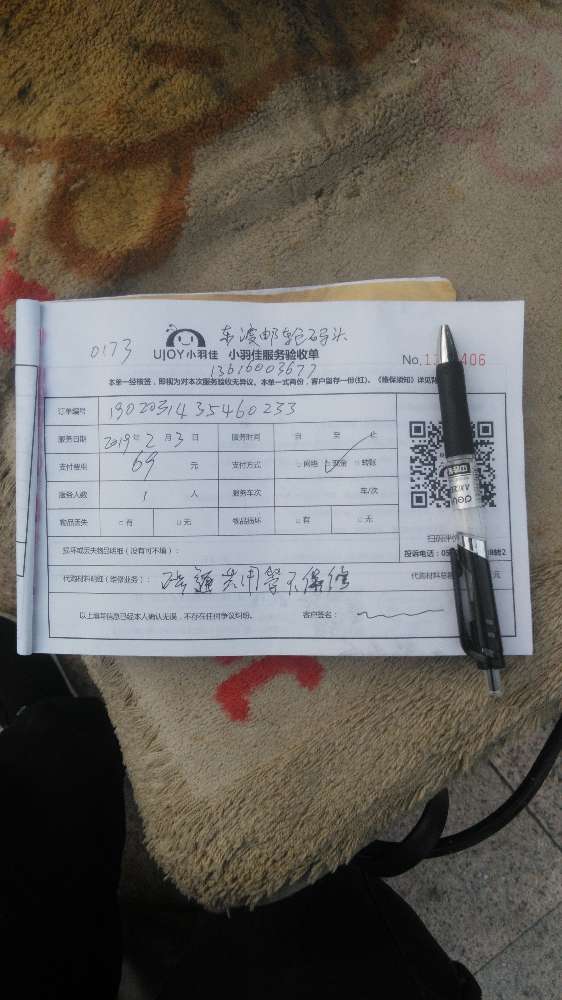 东渡邮轮码头
0173 UJOY小羽佳 小羽佳服务验收单
13616003677 No.
本单一经核签，即视为对本次服务验收无异议。本单一式两份，客户留存一份(红)。《维保须知》详见背
订单编号 1902031435460233
服务日期 2019年2月3日 服务时间 自 至 止
支付费用 69 元 支付方式 □网络 □现金 □转账
服务人数 1 人 服务车次 车/次
物品丢失 □有 □无 物品损坏 □有 □无
扫码评价
损坏或丢失物品明细（没有可不填）：
投诉电话：05 转2
代购材料明细（维修业务）： 疏通共用管不保修 代购材料总 元
以上填写信息已经本人确认无误，不存在任何争议纠纷。 客户签名：
deli